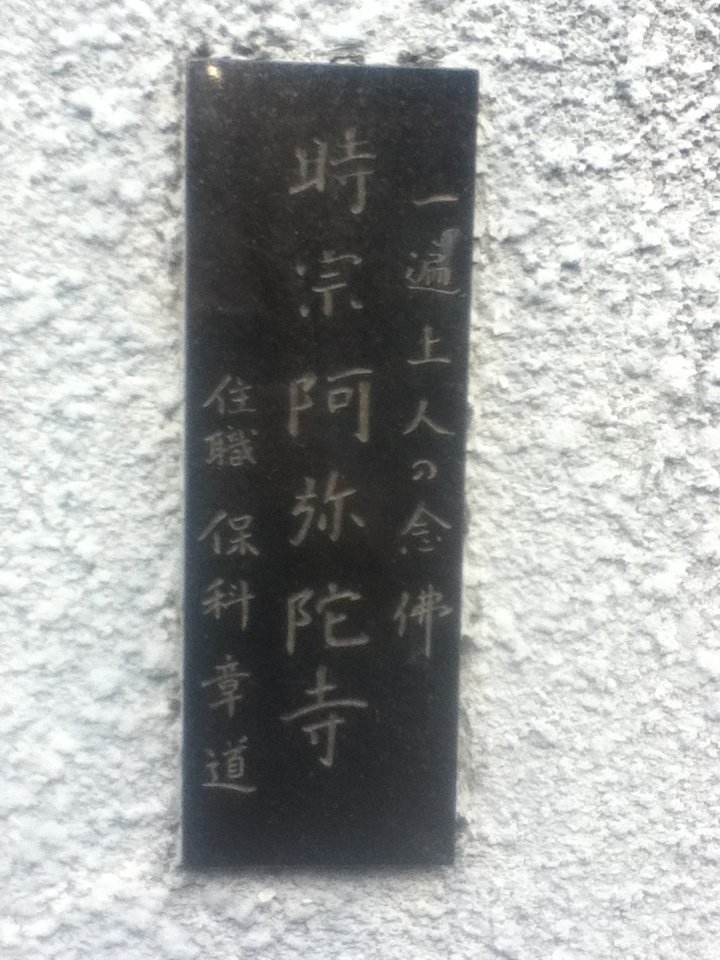 一遍上人の念佛
時宗阿弥陀寺
住職 保科章道